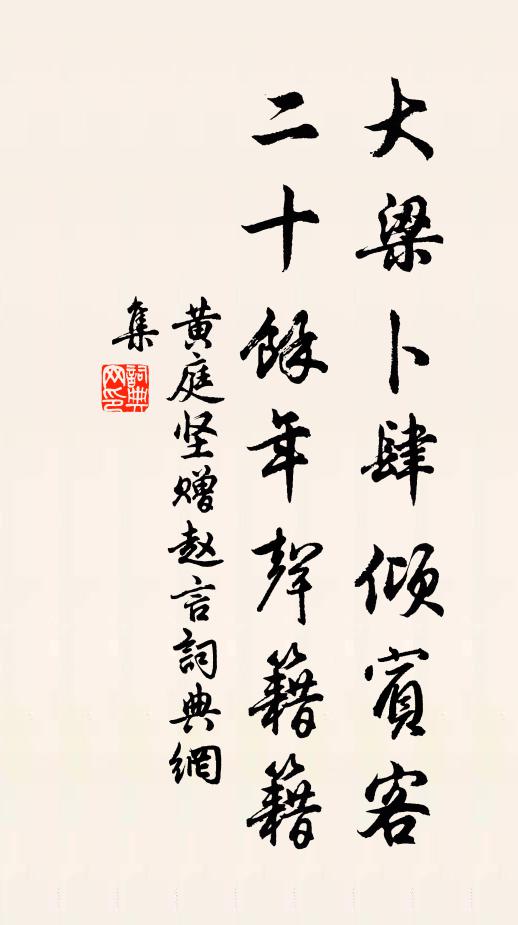 大梁卜肆傾賓客
二十餘年聲籍籍
黄庭坚赠赵言詞典網
集
詞典網印